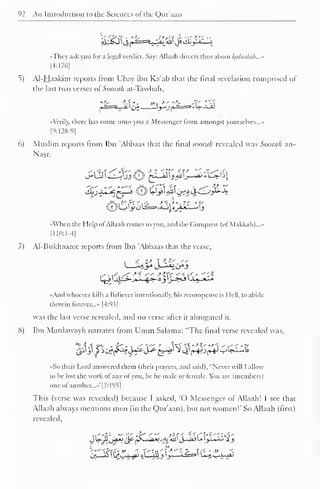 92 An Introduction to the Sciences of the Qur'aan
يَسْتَفْتُونَكَ قُلِ اللَّهُ يُفْتِيكُمْ فِي الْكَلَالَةِ
«They ask you for a legal verdict. Say: Allaah directs thus about kalaalah...»
[4:176]
5) Al-Haakim reports from Ubay ibn Ka'ab that the final revelation comprised of
the last two verses of Soorah at-Tawbah,
لَقَدْ جَاءَكُمْ رَسُولٌ مِنْ أَنْفُسِكُمْ
«Verily, there has come unto you a Messenger from amongst yourselves...»
[9:128-9]
6) Muslim reports from Ibn 'Abbaas that the final soorah revealed was Soorah an-
Nasr.
إِذَا جَاءَ نَصْرُ اللَّهِ وَالْفَتْحُ ۝ وَرَأَيْتَ النَّاسَ
يَدْخُلُونَ فِي دِينِ اللَّهِ أَفْوَاجًا ۝ فَسَبِّحْ بِحَمْدِ رَبِّكَ
وَاسْتَغْفِرْهُ إِنَّهُ كَانَ تَوَّابًا ۝
«When the Help of Allaah comes to you, and the Conquest (of Makkah)...»
[110:1-4]
7) Al-Bukhaaree reports from Ibn 'Abbaas that the verse,
وَمَنْ يَقْتُلْ مُؤْمِنًا
مُتَعَمِّدًا فَجَزَاؤُهُ جَهَنَّمُ خَالِدًا فِيهَا
«And whoever kills a Believer intentionally, his recompense is Hell, to abide
therein forever...» [4:93]
was the last verse revealed, and no verse after it abrogated it.
8) Ibn Mardawayh narrates from Umm Salama: "The final verse revealed was,
فَاسْتَجَابَ لَهُمْ رَبُّهُمْ أَنِّي لَا أُضِيعُ عَمَلَ عَامِلٍ مِنْكُمْ مِنْ ذَكَرٍ أَوْ أُنْثَى
«So their Lord answered them (their prayers, and said), "Never will I allow
to be lost the work of any of you, be he male or female. You are (members)
one of another...»"[3:195]
This (verse was revealed) because I asked, 'O Messenger of Allaah! I see that
Allaah always mentions men (in the Qur'aan), but not women!' So Allaah (first)
revealed,
وَلَا تَتَمَنَّوْا مَا فَضَّلَ اللَّهُ بِهِ بَعْضَكُمْ عَلَى بَعْضٍ لِلرِّجَالِ
نَصِيبٌ مِمَّا اكْتَسَبُوا وَلِلنِّسَاءِ نَصِيبٌ مِمَّا اكْتَسَبْنَ